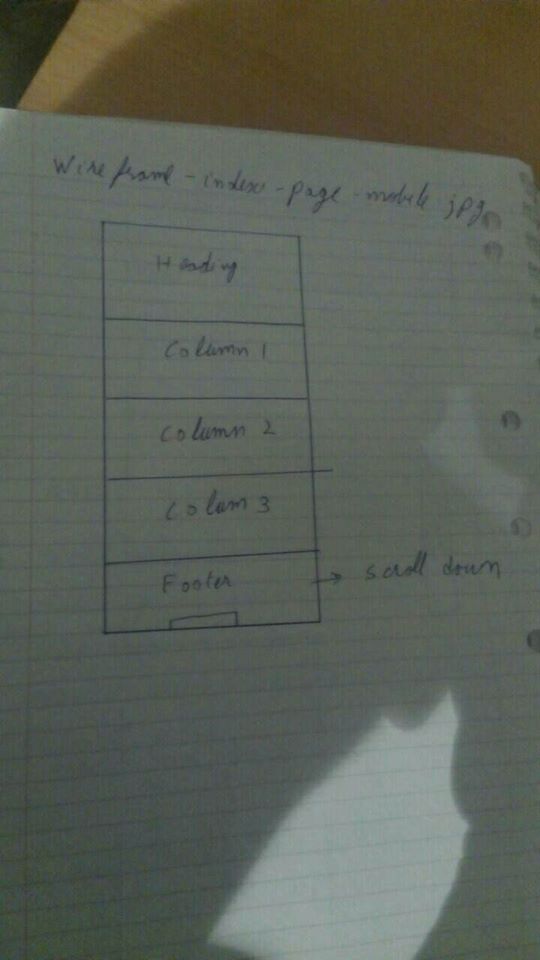 Wireframe-index-page-mobile jpg
Heading
Column 1
Column 2
Colum 3
Footer → scroll down